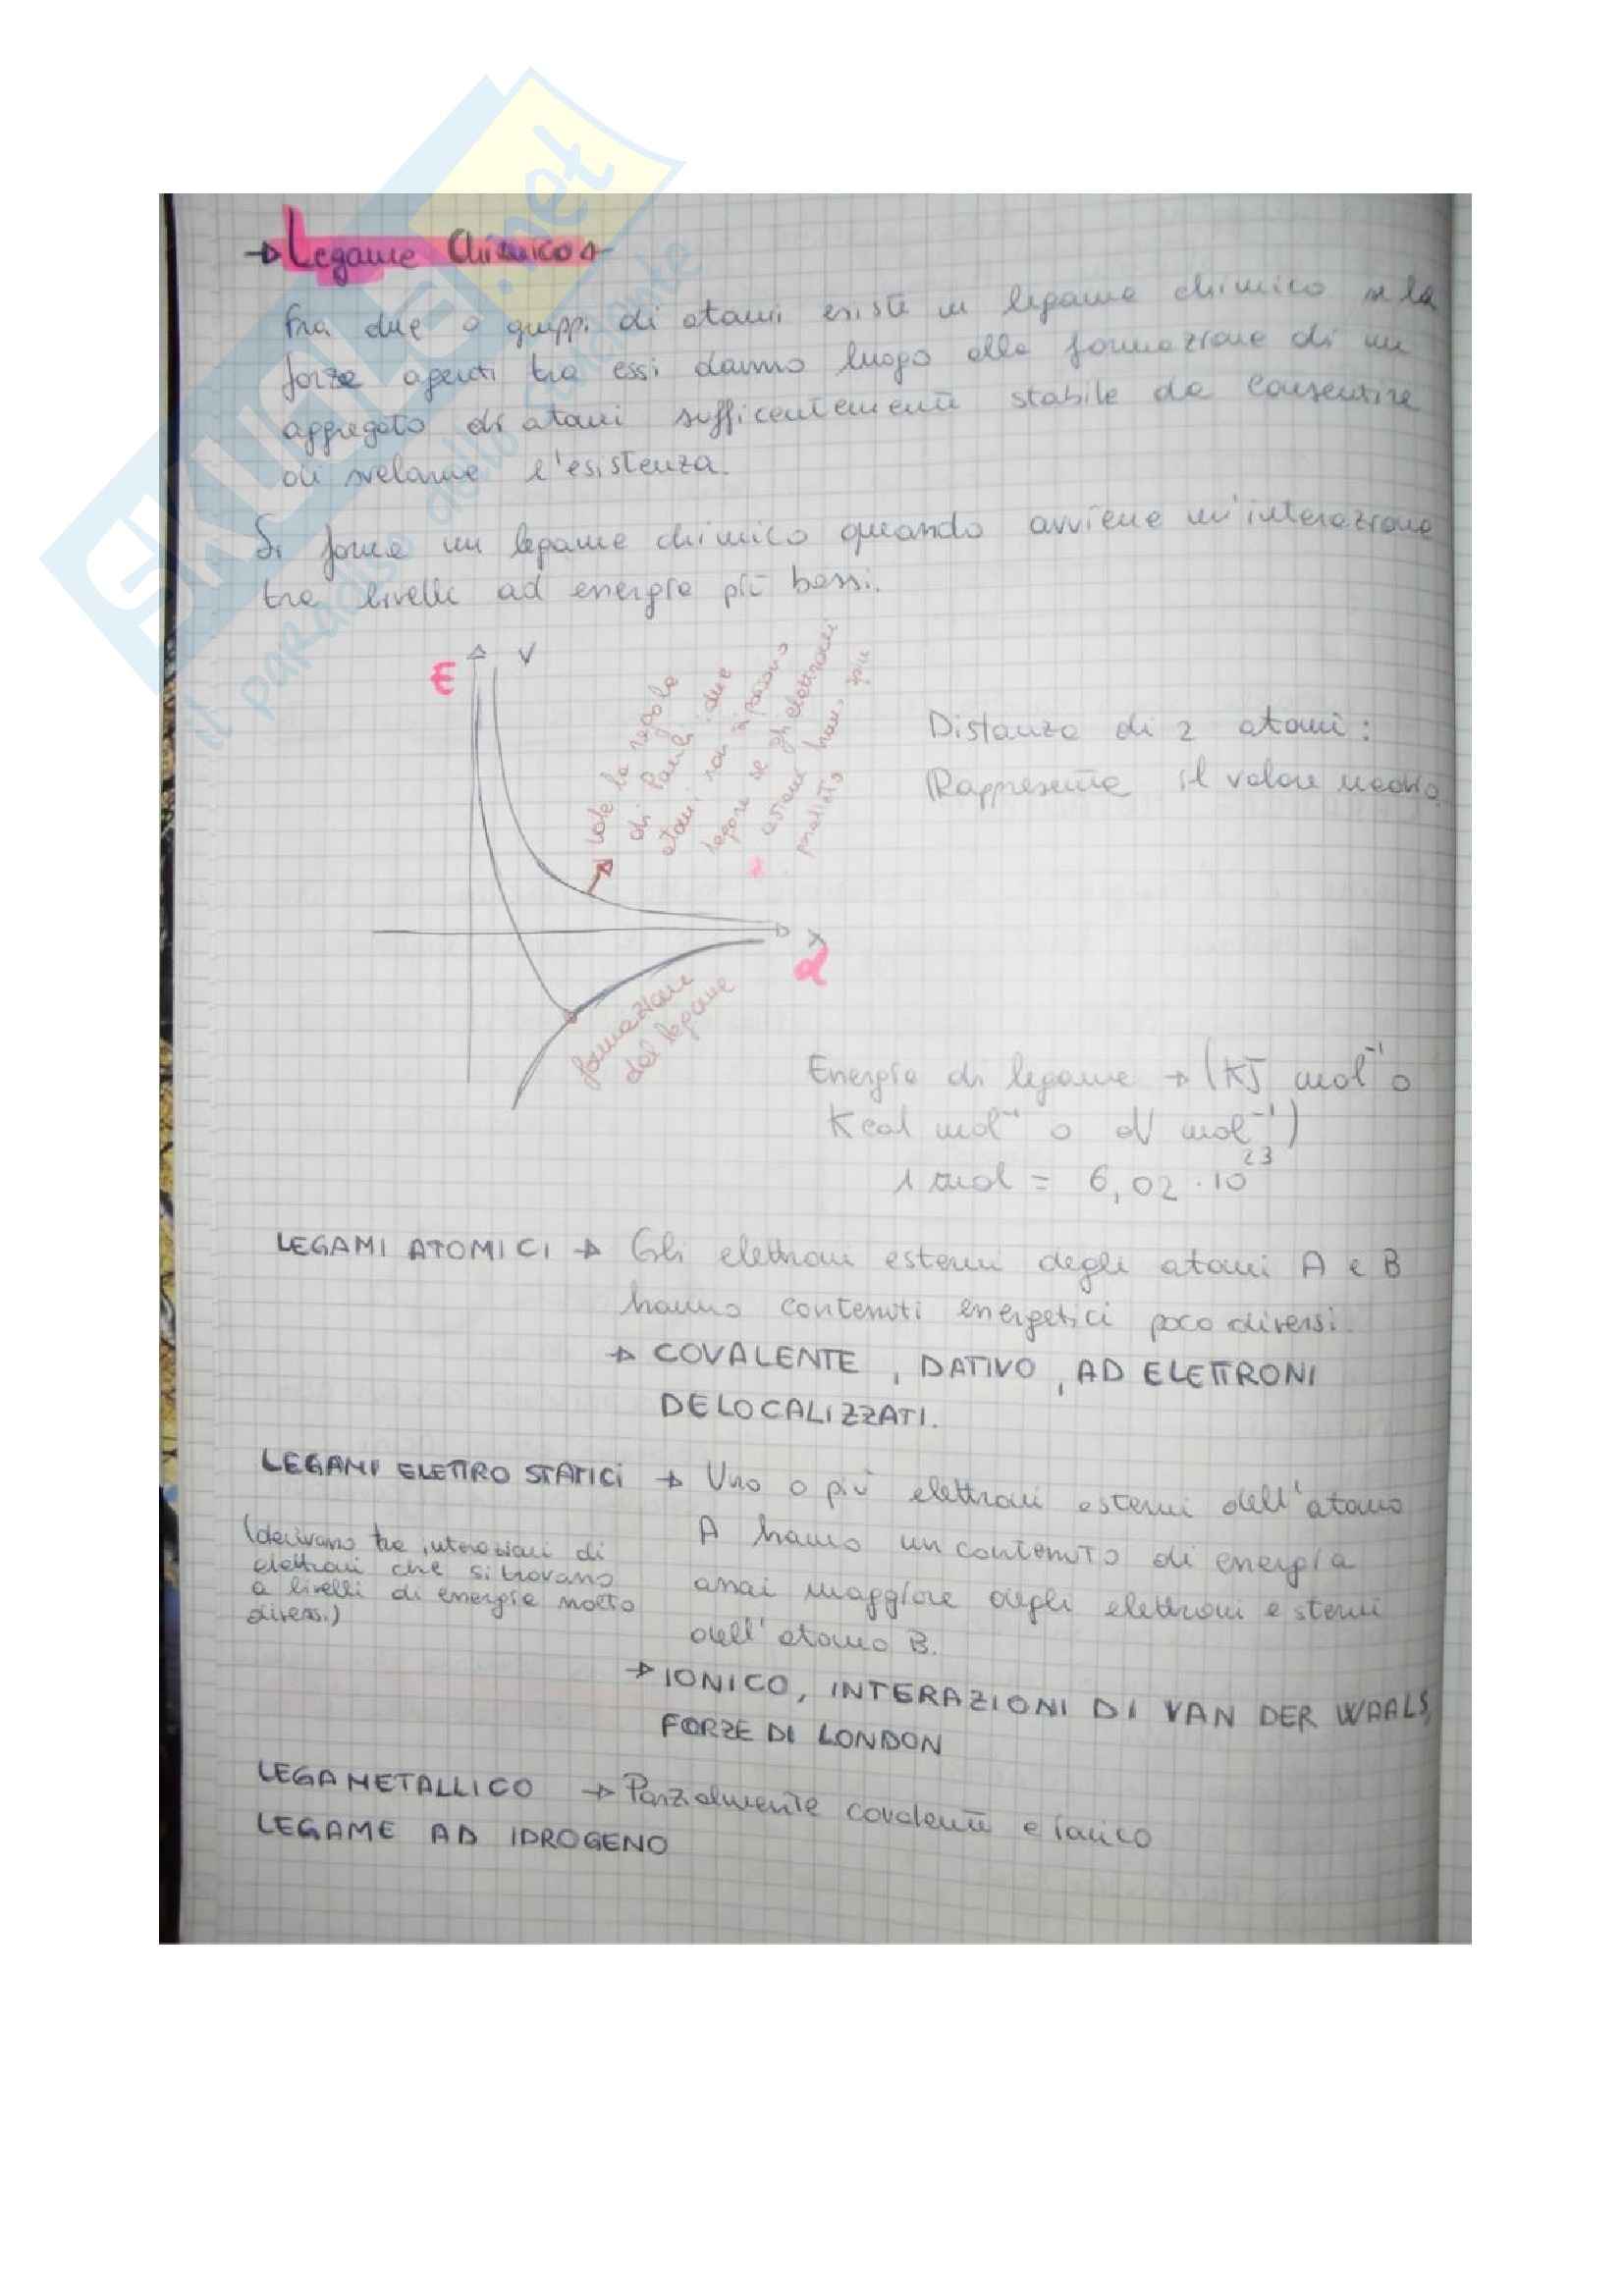 → Legame Chimico
Fra due o gruppi di atomi esiste un legame chimico se la
forze agenti tra essi danno luogo alla formazione di un
aggregato di atomi sufficentemente stabile da consentire
di svelarne l'esistenza.
Si forma un legame chimico quando avviene un'interazione
tra livelli ad energia più bassi.
E V
vale la regola
di Pauli: due
atomi non si possono
legare se gli elettroni
esterni hanno spin
parallelo
Distanza di 2 atomi:
Rappresenta il valore medio
x
d
formazione
del legame
Energia di legame → (KJ mol⁻¹ o
Kcal mol⁻¹ o eV mol⁻¹)
1 mol = 6,02 · 10²³
LEGAMI ATOMICI → Gli elettroni esterni degli atomi A e B
hanno contenuti energetici poco diversi.
→ COVALENTE, DATIVO, AD ELETTRONI
DELOCALIZZATI.
LEGAMI ELETTROSTATICI → Uno o più elettroni esterni dell'atomo
A hanno un contenuto di energia
assai maggiore degli elettroni esterni
dell'atomo B.
(derivano tra interazioni di
elettroni che si trovano
a livelli di energia molto
diversi)
→ IONICO, INTERAZIONI DI VAN DER WAALS,
FORZE DI LONDON
LEGAMETALLICO → Parzialmente covalente e ionico
LEGAME AD IDROGENO
SKUOLA.net
il paradiso dello studente